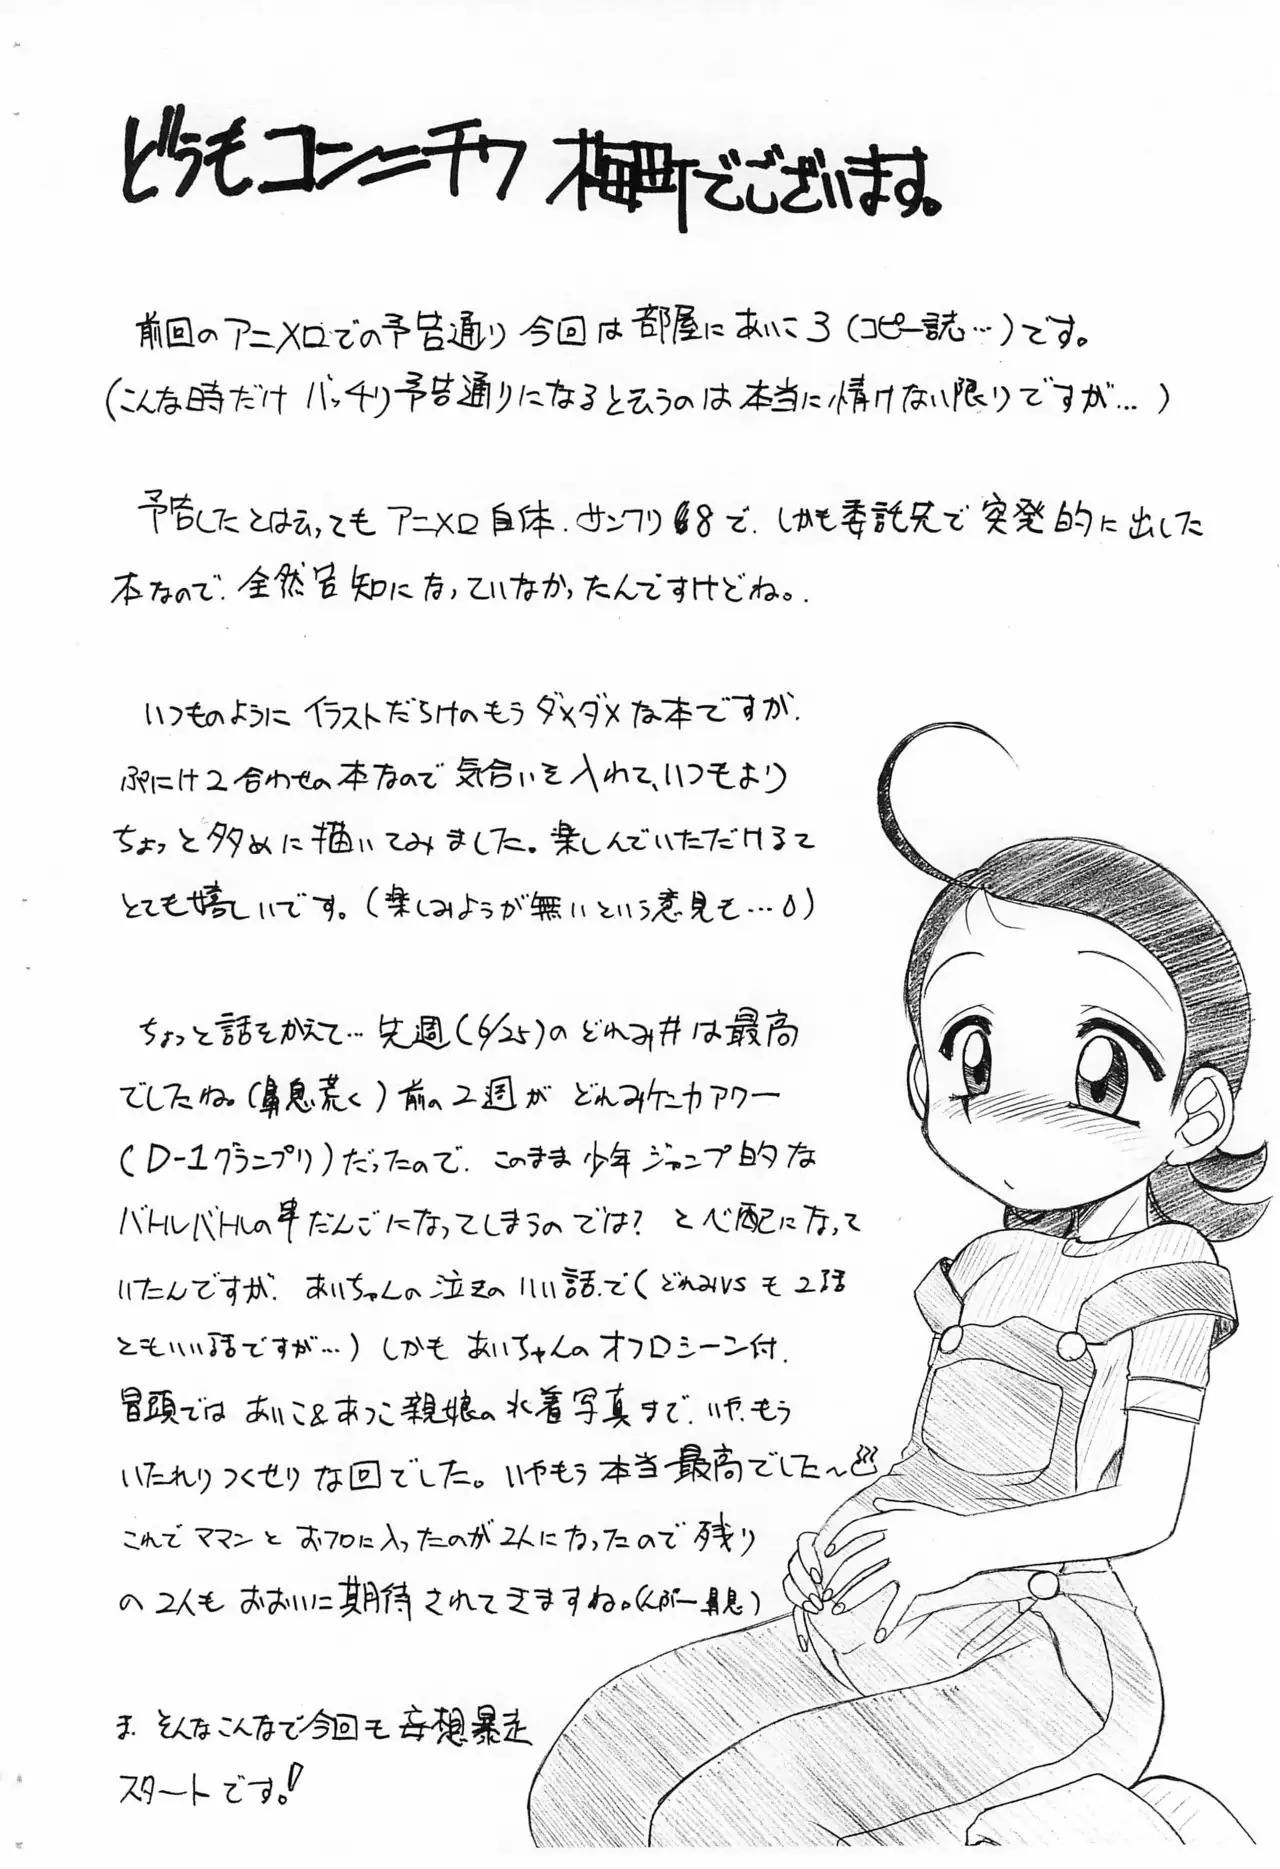 どうもコンニチワ 梅町でございます。
前回のアニメロでの予告通り今回は部屋にあいこ3(コピー誌…)です。
(こんな時だけバッチリ予告通りになると云うのは本当に情けない限りですが…)
予告したとは云ってもアニメロ自体、サンクリ8で、しかも委託先で突発的に出した
本なので、全然告知になっていなかったんですけどね。
いつものようにイラストだらけのもうダメダメな本ですが、
ぷにけ2合わせの本なので気合いを入れて、いつもより
ちょっと多めに描いてみました。楽しんでいただけると
とても嬉しいです。(楽しみようが無いという意見も…)
ちょっと話をかえて…先週(6/25)のどれみ#は最高
でしたね。(鼻息荒く)前の2週がどれみケンカアワー
(D-1グランプリ)だったので、このまま少年ジャンプ的な
バトルバトルの串だんごになってしまうのでは?と心配になって
いたんですが、あいちゃんの泣きのいい話で(どれみVSも2話
ともいい話ですが…)しかもあいちゃんのオフロシーン付、
冒頭ではあいこ&あつこ親娘の水着写真まで、いや、もう
いたれりつくせりな回でした。いやもう本当最高でした〜
これでママンとおフロに入ったのが2人になったので残り
の2人もおおいに期待されてきますね。(んぷー鼻息)
ま、そんなこんなで今回も妄想暴走
スタートです。!